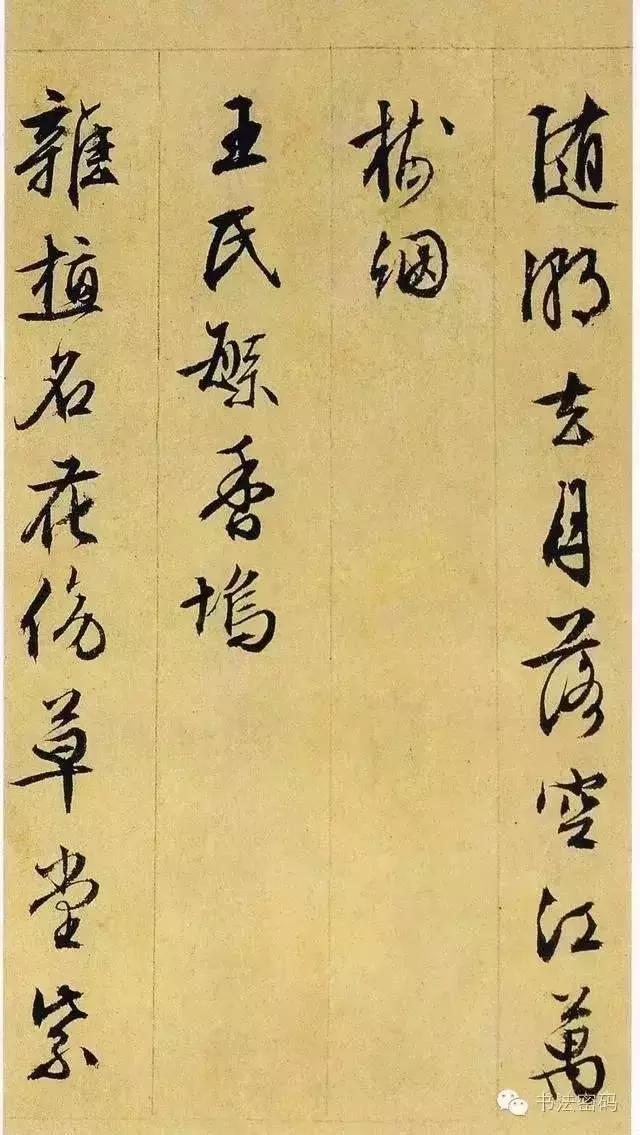 随潮去月落空江萬
樹烟
王氏繁香塢
雜植名花傍草堂紫
书法密码